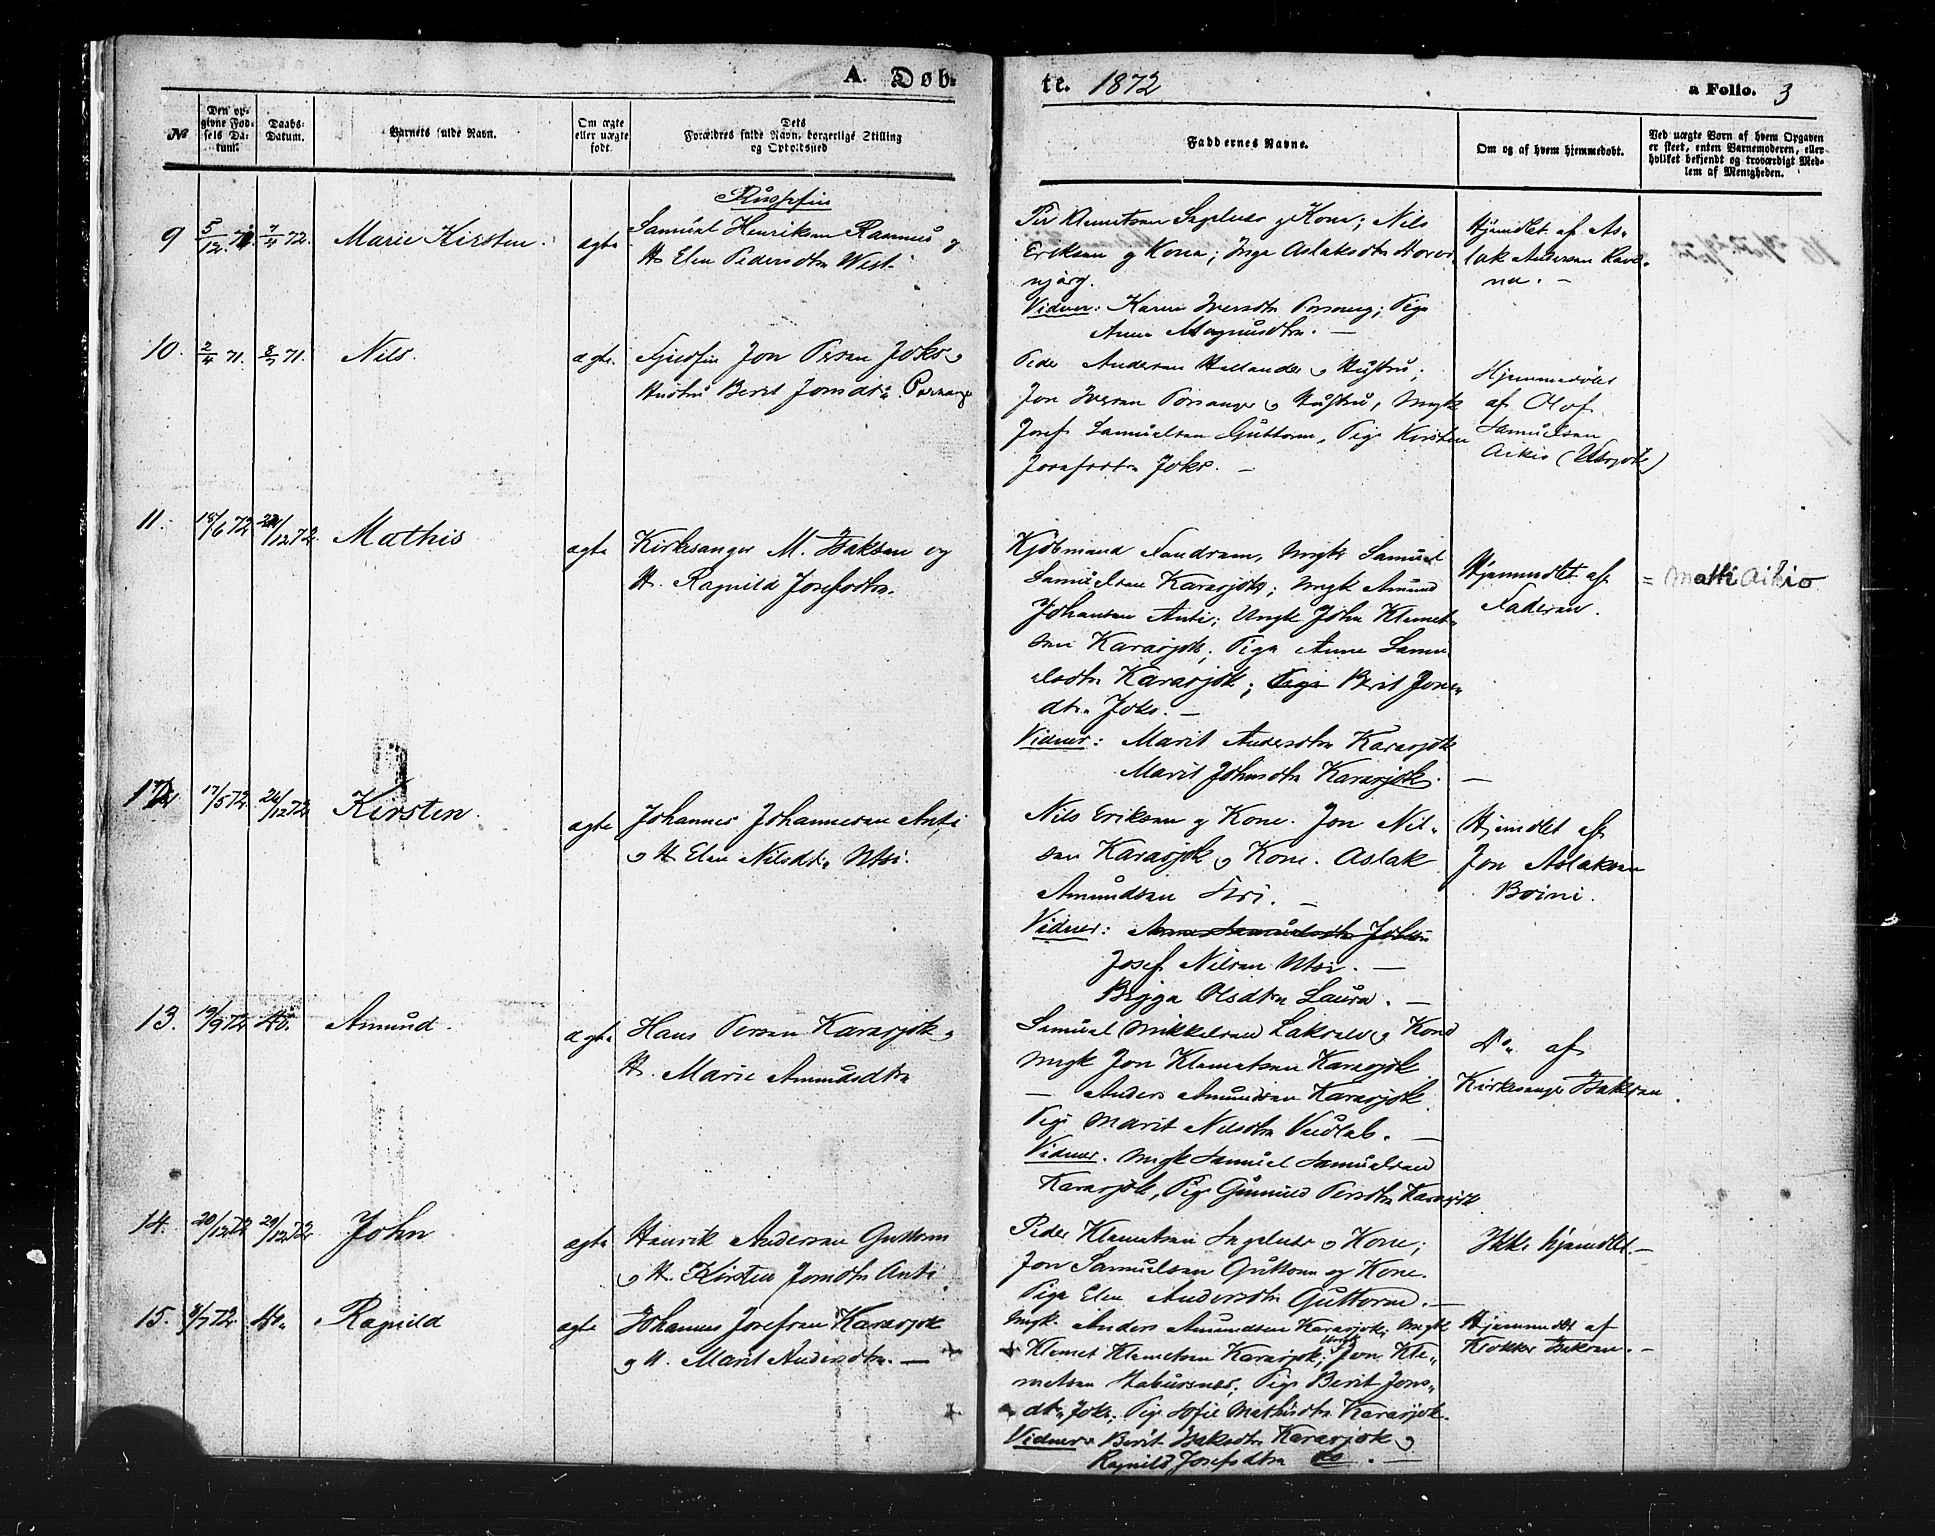 A. Døb-
te. 1872
a Folio. 3
№
Den op-
givne Fød-
sels Da-
tum.
Daabs-
Datum.
Barnets fulde Navn.
Om ægte
eller uægte
født.
Dets
Forældres fulde Navn, borgerlige Stilling
og Opholdssted
Faddernes Navne.
Om og af hvem hjemmedøbt.
Ved uægte Børn af hvem Opgaven
er skeet, enten Barnemoderen, eller
hvilket bekjendt og troværdigt Med-
lem af Menigheden.
9 5/12 71. 7/4 72. Marie Kirsten. ægte
Samuel Henriksen Rasmus og
H. Elen Pedersdtr West.
Per Klemetsen Ingelues og Kone; Nils
Eriksen og Kone; Inga Aslaksdtr
njarg.
Vidner: Karen Iversdtr Porsang; Pige
Anne Magnusdtr. —
Hjemdbt af As-
lak Andersen Rave-
na. —
10. 2/4 71. 8/7 71. Nils. ægte.
Jon Persen Joks og
Hustru Berit Jonsdtr Porsang
Peder Andersen Hallander og Hustru;
Jon Iversen Porsanger og Hustru, Ungk
Josef Samuelsen Guttorm, Pige Kirsten
Josefsdtr Joks. —
Hjemmedøbt
af Olof
Samuelsen
Aikio (Utsjok)
11. 18/6 72 /12 72. Mathis ægte
Kirkesanger M. Isaksen og
H. Ragnild Josefsdtr.
Kjøbmand Fandrem, Ungk Samuel
Samuelsen Karasjok; Ungk Amund
Johansen Anti; Ungk John Klemet-
sen Karasjok; Pige Anne Samu-
elsdtr Karasjok; Pige Berit Jons-
dtr Joks. —
Vidner: Marit Andersdtr Karasjok
Marit Johnsdtr Karasjok. —
Hjemmedbt af
Faderen.
= Matti Aikio
12 17/5 72. 26/12 72. Kirsten. ægte
Johannes Johannesen Anti
og H. Elen Nilsdtr Utsi.
Nils Eriksen og Kone. Jon Nil-
sen Karasjok og Kone. Aslak
Amundsen Siri. —
Vidner: Anne Samuelsdtr
Josef Nilsen Utsi. —
Bigga Olsdtr Laura. —
Hjemdbt af
Jon Aslaksen
Boini.
13. 19/9 72 do. Amund. ægte
Hans Persen Karasjok og
H. Marie Amundsdtr
Samuel Mikkelsen Laksel og Kone
Ungk Jon Klemetsen Karasjok
— Anders Amundsen Karasjok.
Pige Marit Nilsdtr Vuolab. —
Vidner. Ungk Samuel Samuelsen
Karasjok, Pige Gunnild Persdtr Karasjok.
Do. af
Kirkesanger Isaksen.
14. 20/12 72 29/12 72. John ægte
Henrik Andersen Guttorm
og H. Kirsten Jonsdtr Anti
Peder Klemetsen Ingelues og Kone;
Jon Samuelsen Guttorm og Kone.
Pige Elen Andersdtr Guttorm. —
Ikke hjemdbt. —
15. /7 72. do. Ragnild ægte
Johannes Josefsen Karasjok
og H. Marit Andersdtr. —
Ungk. Anders Amundsen Karasjok; Ungk
Klemet Klemetsen Karasjok; Ungk Jon Kle-
metsen Haburnes; Pige Berit Jons-
dtr Joks; Pige Sofie Mathisdtr Karasjok.
Vidner Berit Isaksdtr Karasjok og
Ragnild Josefsdtr do. —
Hjemmedbt af
Klokker Isaksen. —